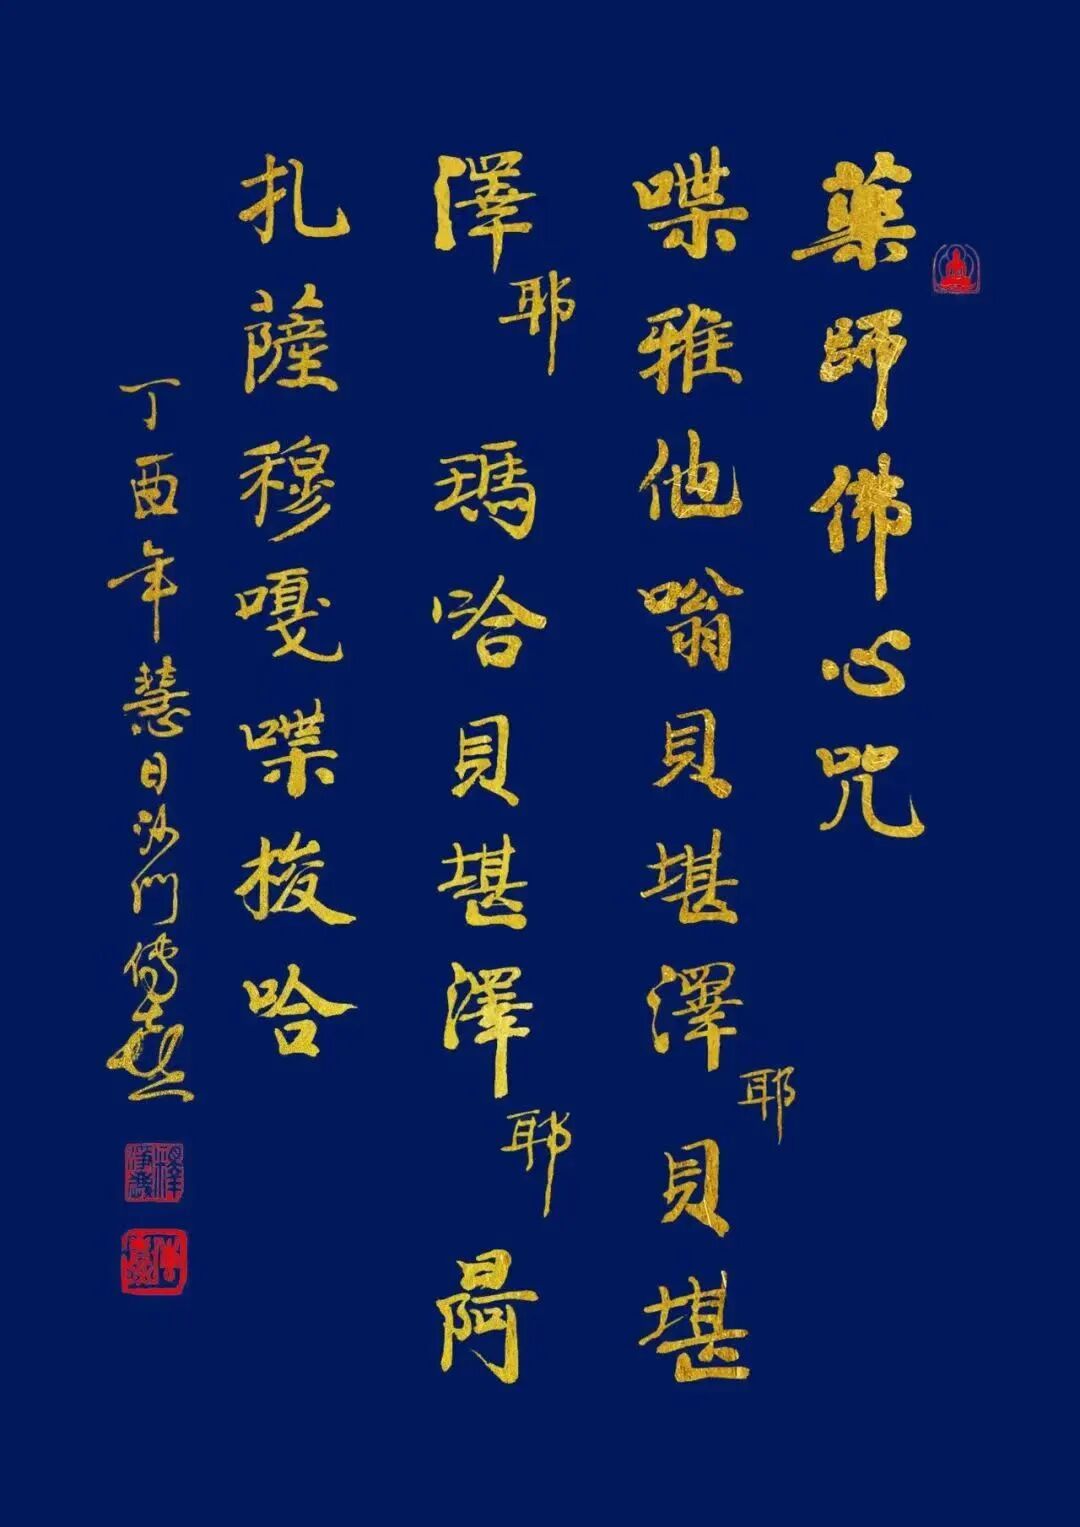 薬師佛心咒
喋雅他嗡貝堪澤耶貝堪
澤耶 瑪哈貝堪澤耶
扎薩穆嘎喋梭哈
丁酉年慧日沙門傳喜